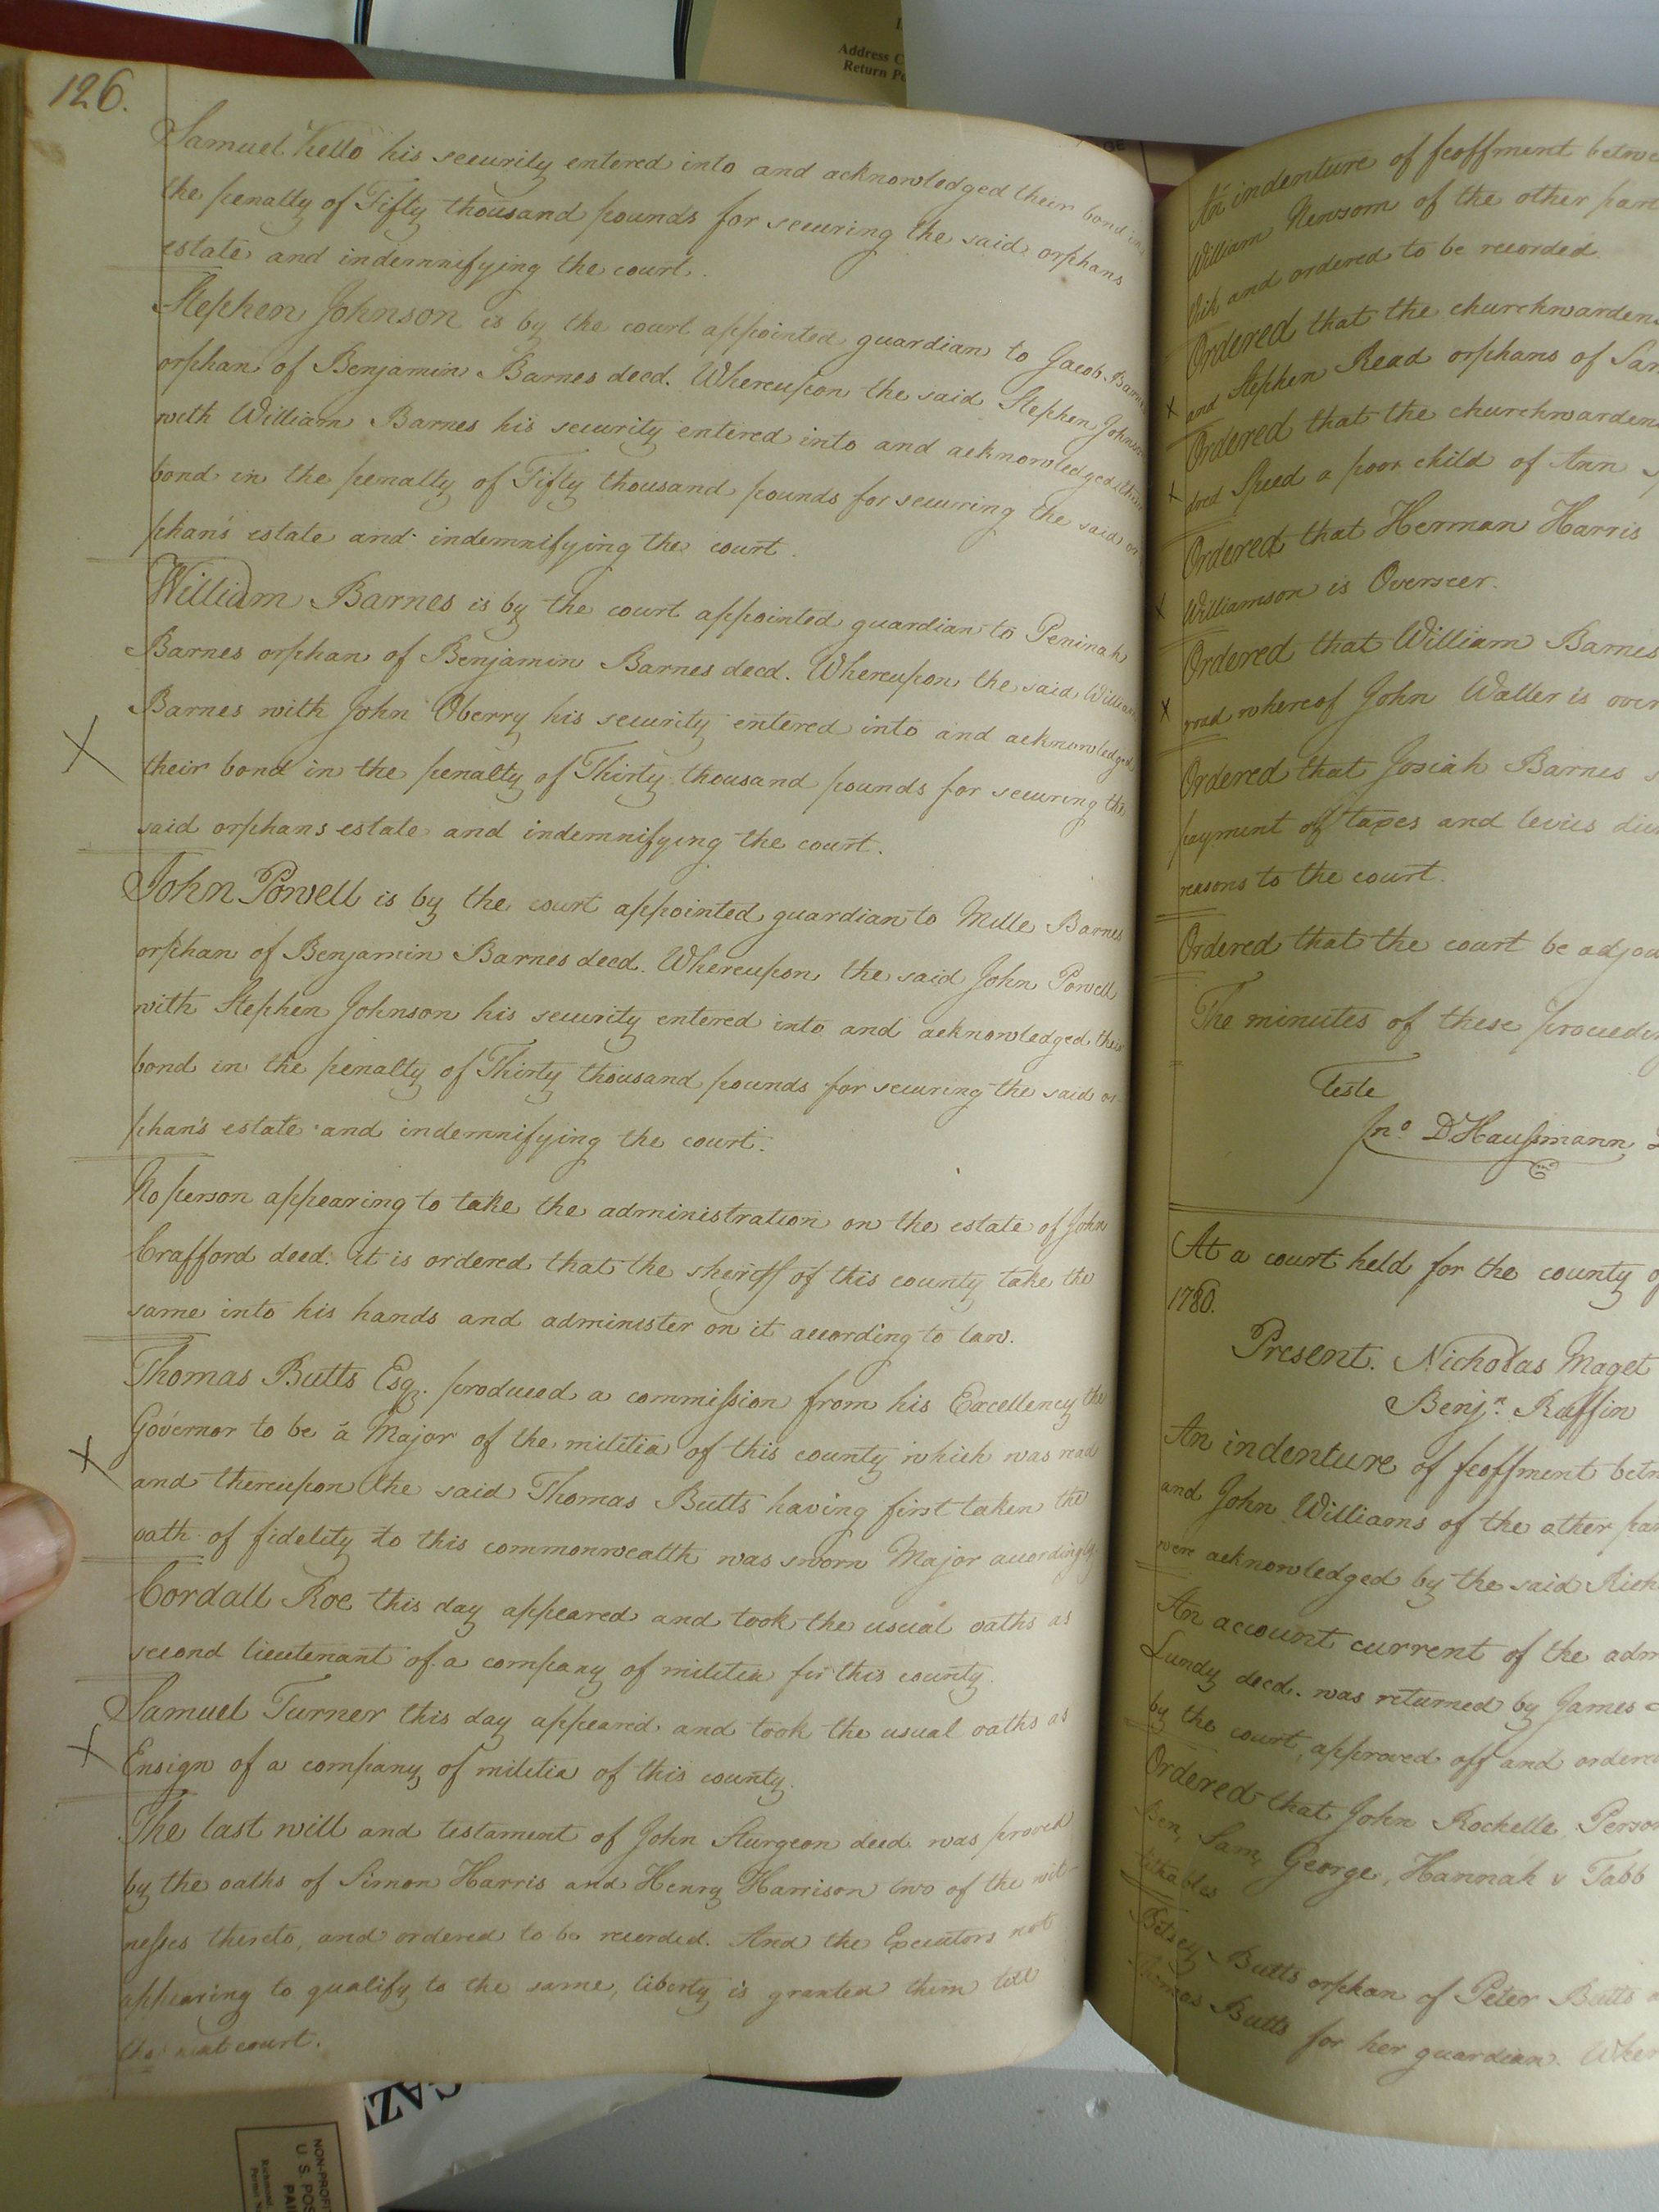 Address C
Return Po
126.
Samuel Kello his security entered into and acknowledged their bond in
the penalty of Fifty thousand pounds for securing the said orphans
estate and indemnifying the court.
Stephen Johnson is by the court appointed guardian to Jacob Barnes
orphan of Benjamin Barnes decd. Whereupon the said Stephen Johnson
with William Barnes his security entered into and acknowledged their
bond in the penalty of Fifty thousand pounds for securing the said or
phan's estate and indemnifying the court.
William Barnes is by the court appointed guardian to Peninah
Barnes orphan of Benjamin Barnes decd. Whereupon the said William
Barnes with John Oberry his security entered into and acknowledged
their bond in the penalty of Thirty thousand pounds for securing the
said orphans estate and indemnifying the court.
John Powell is by the court appointed guardian to Mille Barnes
orphan of Benjamin Barnes decd. Whereupon the said John Powell
with Stephen Johnson his security entered into and acknowledged their
bond in the penalty of Thirty thousand pounds for securing the said or-
phan's estate and indemnifying the court.
No person appearing to take the administration on the estate of John
Crafford decd. it is ordered that the sheriff of this county take the
same into his hands and administer on it according to law.
Thomas Butts Esq. produced a commission from his Excellency the
Governor to be a Major of the militia of this county which was read
and thereupon the said Thomas Butts having first taken the
oath of fidelity to this commonwealth was sworn Major accordingly
Cordall Roe this day appeared and took the usual oaths as
second lieutenant of a company of militia for this county.
Samuel Turner this day appeared and took the usual oaths as
Ensign of a company of militia of this county.
The last will and testament of John Sturgeon decd. was proved
by the oaths of Simon Harris and Henry Harrison two of the wit-
nesses thereto, and ordered to be recorded. And the Executors not
appearing to qualify to the same, liberty is granted them till
the next court.
An indenture of feoffment betwe
William Newsom of the other part
and ordered to be recorded.
Ordered that the churchwardens
and Stephen Read orphans of Sam
Ordered that the churchwardens
dred Speed a poor child of Ann
Ordered that Herman Harris
Williamson is Overseer.
Ordered that William Barnes
road whereof John Waller is over
Ordered that Josiah Barnes
payment of taxes and levies
reasons to the court.
Ordered that the court be adjou
The minutes of these proceedin
Teste
Jno. D'Haussmann
At a court held for the county of
1780.
Present. Nicholas Maget
Benjn. Ruffin
An indenture of feoffment betw
and John Williams of the other par
were acknowledged by the said Rich
An account current of the adm
Lundy decd. was returned by James
by the court, approved off and ordered
Ordered that John Rochelle Person
Ben, Sam, George, Hannah & Tabb
tithables
Betsey Butts orphan of Peter Butts
Thomas Butts for her guardian. Wher
GAZ
NON-PROFIT
U. S. POS
PAI
Richmond,
Permit N